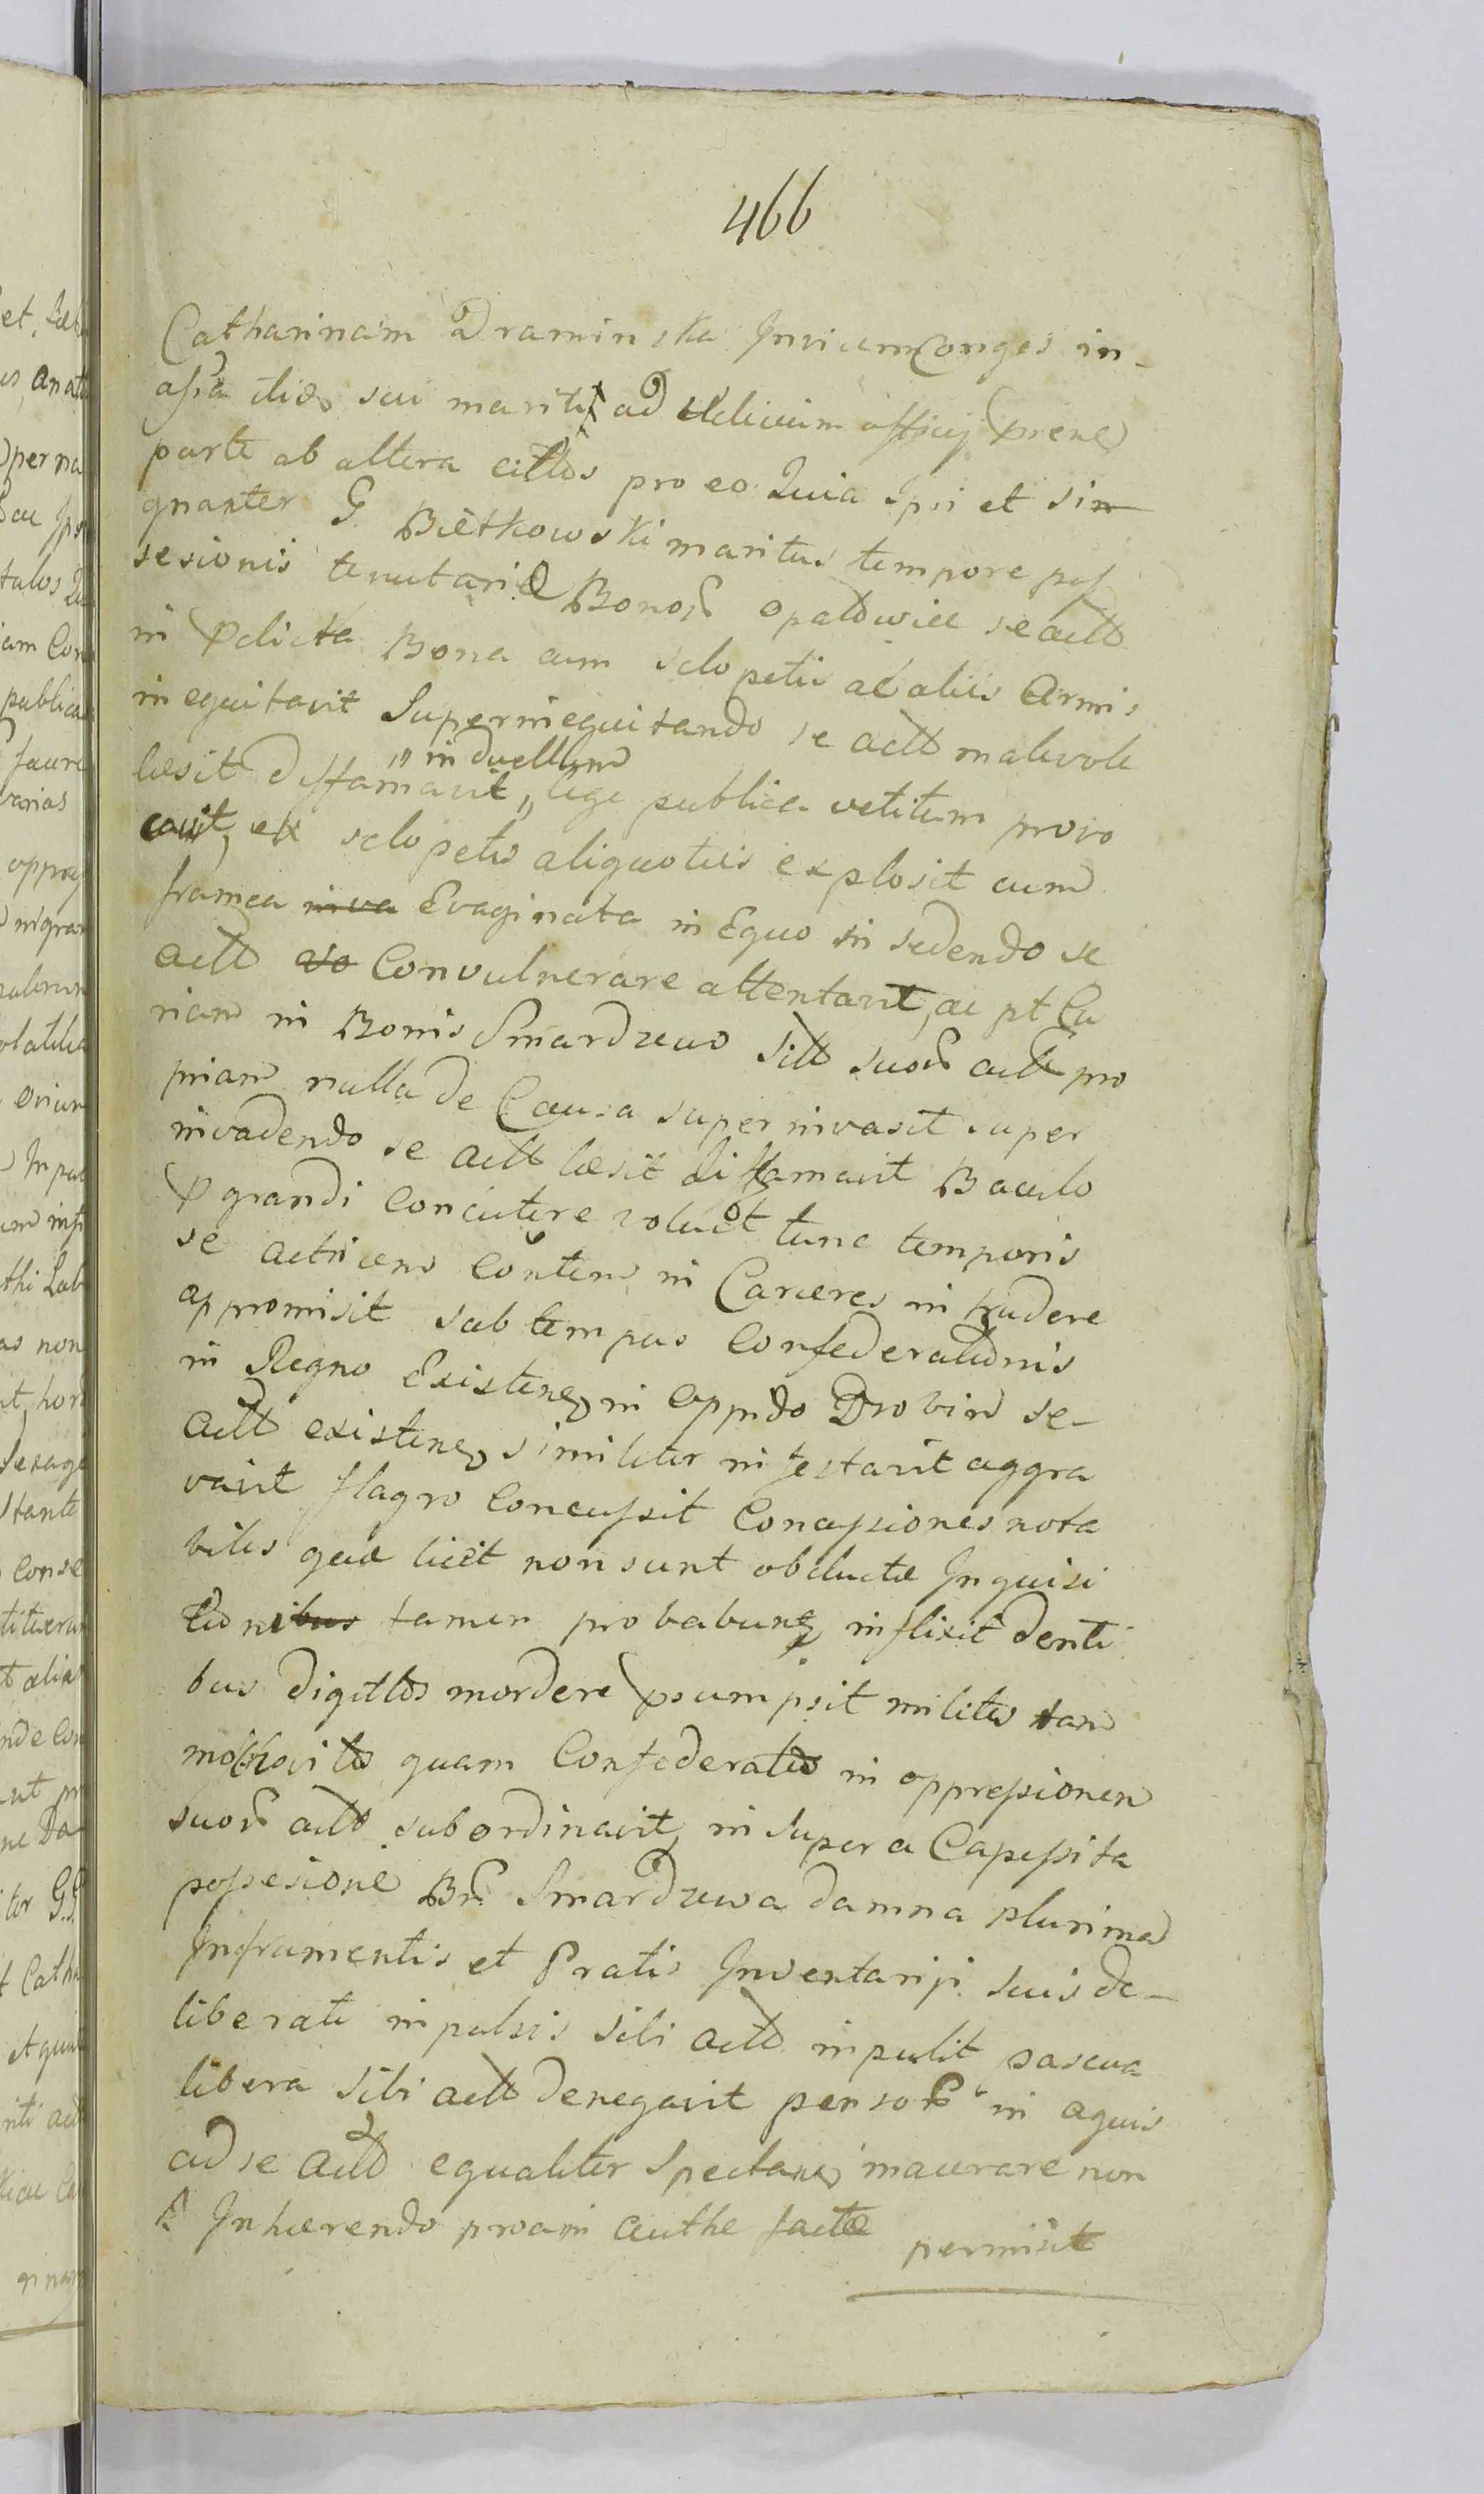 466
Catharinam Draminska Invicem Conges in-
assã itidẽ sui mariti ad Relicium officy pñene
parte ab altera cittos pro eo Quia Ipsi et sin
gnanter G. Bietkowski maritus tempore pos
sesionis tenutariæ Bonor opatowiec se actt
in pdicta Bona cum sclopetis ac aliis Armis
inequitavit Superinequitando se actt malevole
læsit diffamavit, "in duellum" lege publica vetitum provo
cavit, ex sclopetis aliquoties explosit cum
framea Evaginata in Equo in sedendo se
actt Convulnerare attentavit, ac pt Cu
riam in Bonis Smardzewo sitt suor actt pro
priam nulla de Causa superinvasit super
invadendo se actt læsit diffamavit Baculo
pgrandi concutere voluit tunc temporis
se actricem Contem in Carceres intrudere
appromisit sub tempus Confederationis
in Regno Existen in oppido Drobin se-
actt existen similiter infestavit aggra
vavit flagro Concussit Concussiones nota
biles quæ licet non sunt obductæ Inquisi
tion tamen probabunt inflixit denti
bus digittos mordere psumpsit milites tam
moschovitos quam Confederatos in oppressionem
suor actt subordinavit, insuper a Capessita
possesione Br. Smardzewa damna plurima
Infrumentis et Pratis Inventariji suis de-
liberate inpulsis sibi actt inpulit pascua
libera sibi actt denegavit pensor in aquis
ad se actt equaliter spectan macerare non
Inhærendo proãm authe factæ permisit